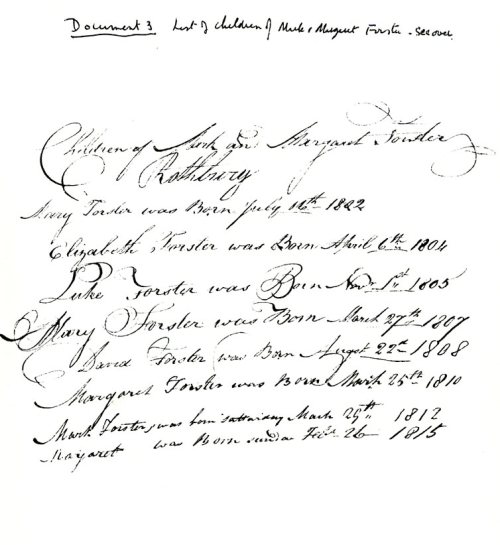 Document 3 List of children of Mark & Margaret Forster - see over
Children of Mark and Margaret Forster
Rothbury
Mary Forster was Born July 14th 1802
Elizabeth Forster was Born April 6th 1804
Luke Forster was Born Novr 1st 1805
Mary Forster was Born March 27th 1807
David Forster was Born Augst 22th 1808
Margaret Forster was Born March 25th 1810
Mark Forster was born March 29th 1812
Margaret was Born 26 1815